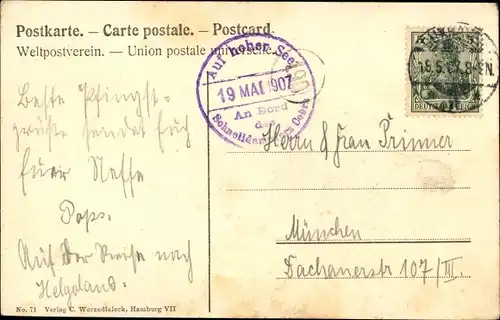 Postkarte. – Carte postale. – Postcard.
Weltpostverein. – Union postale universelle.
Auf hoher See
19 MAI 1907
An Bord
des
DEUTSCHES REICH
Beste Pfingst-
grüße sendet Euch
Euer Neffe
Pops.
Auf der Reise nach
Helgoland.
Herrn & Frau Primmer
München
Dachauerstr 107/III.
No. 71 Verlag C. Worzedialeck, Hamburg VII